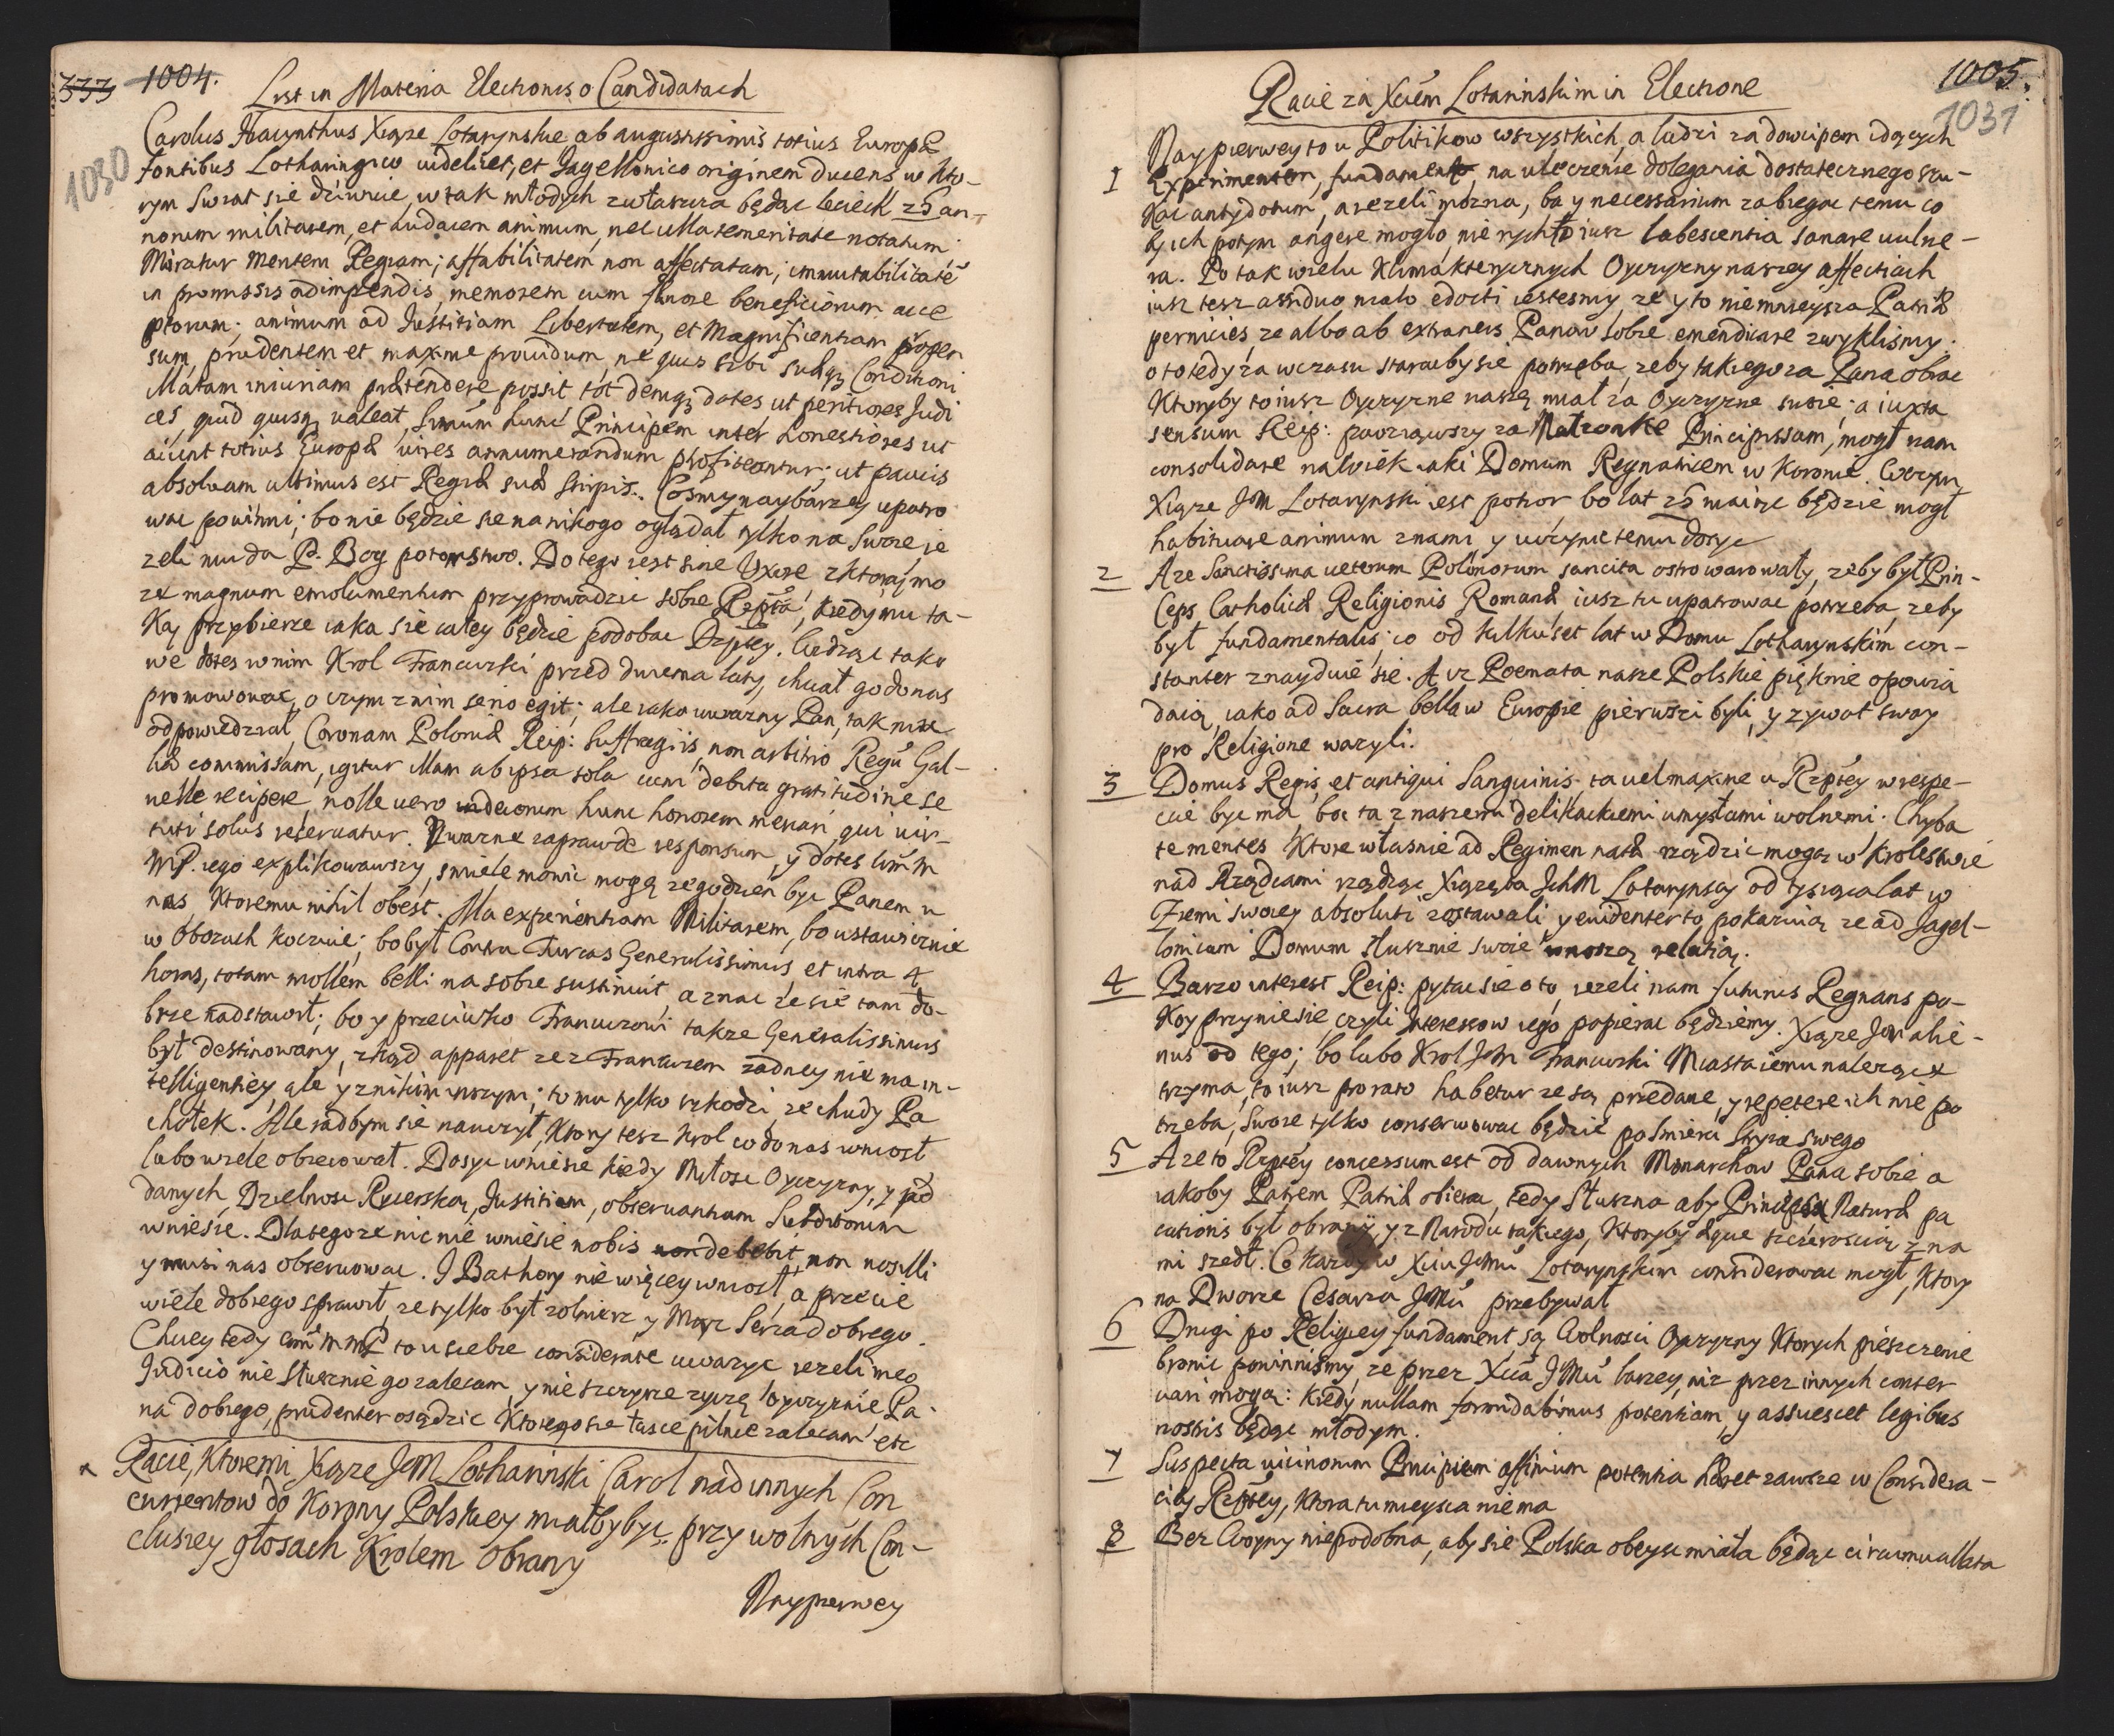 333 1004.
List in Materia Electionis o Candidatach
1030
Carolus Hiacynthus Xiąze Lotarynskie ab augustissimis totius Europæ
fontibus Lotharingico videlicet, et Jagellonico originem ducens w kto-
rym Swiat sie dziwuie, w tak młodych zwłaszcza będąc leciech 25 an-
norum militarem, et audacem animum, nec ulla temeritate notatum
Miratur mentem Regiam; affabilitatem non affectatam; immutabilitatē
in promissis adimplendis, memorem cum fænore beneficiorum acce
ptorum; animum ad Justitiam Libertatem, et Magnificentiam propen
sum, prudentem et maxime providum, ne quis sibi suæq; Conditioni
illatam iniuriam prætendere possit tot deniq; dotes ut peritiores Judi
ces, quid quisq; valeat, Sūmum hunc Principem inter honestiores ut
aiunt totius Europæ vires annumerandum profiteantur; ut paucis
absolvam ultimus est Regiæ suæ Stirpis. Cosmy naybarzey upatro
wac powinni; bo nie będzie sie na nikogo oglądał tylko na Swoie je
zeli mu da P. Bog potomstwo. Do tego iest sine Uxore z ktorą mo
ze magnum emolumentum przyprowadzic sobie Rzptā, kiedy mu ta-
ką przybierze iaka sie całey będzie podobac Rzptey. Widząc tako
we dotes w nim Krol Francuzki przed dwiema laty, chciał go do nas
promowowac, o czym z nim serio egit; ale iako uwazny Pan, tak mu
odpowiedział, Coronam Poloniæ Reip: Suffragiis, non arbitrio Regū Gal-
liæ commissam, igitur illam ab ipsa sola cum debita gratitudine se
velle recipere, nolle vero indecorum hunc honorem mercari, qui vir-
tuti solus reservatur. Uwazne zaprawdę responsum, y dotes Wm̄ M
MP. iego explikowawszy, smiele mowic mogę ze godzien byc Panem u
nas, ktoremu nihil obest. Ma experientiam Militarem, bo ustawicznie
w Obozach koczuie; bo był Contra Turcas Generalissimus, et intra 4
horas, totam mollem belli na sobie sustinuit, a znac ze sie tam do-
brze nadstawił; bo y przeciwko Francuzowi takze Generalissimus
był destinowany, zkąd apparet ze z Francuzem zadney nie ma in-
telligentiey, ale y z nikim inszym; to mu tylko szkodzi, ze chudy Pa
chołek. Ale radbym sie nauczył, ktory tesz Krol co do nas wniosł
lubo wiele obiecował. Dosyc wniesie kiedy Miłosc Oyczyzny, y pod
danych, Dzielnosc Rycerską, Justitiam, observantiam Subditorum
wniesie. Dlategoze nic nie wniesie nobis non debebit, non nocebit
y musi nas obserwowac. I Bathory nie więcey wniosł, a przecie
wiele dobrego sprawił, ze tylko był zołnierz y Mąz Serca dobrego.
Chciey tedy Wm̄ M MP to u siebie considerare uwazyc iezeli meo
Judicio nie słusznie go zalecam, y nie szczyrze zyczę Oyczyznie Pa-
na dobrego, prudenter osądzic ktorego sie łasce pilnie zalecam etc
Racie, ktoremi Xiąze JeM Lotharinski Carol nad innych Con
currentow do Korony Polskiey miałby byc, przy wolnych Con-
clusiey głosach Krolem obrany
Naypierwey
1005.
1031
Racie za Xciēm Lotarinskim in Electione
1 Naypierwey to u Politikow wszystkich, a ludzi za dowcipem idących
Experimentem, fundament, na uleczenie dolegania dostatecznego szu-
kac antydotum, a iezeli mozna, ba y necessarium zabiegac temu co
by ich potym angere mogło, nie rychło iusz labescentia sanare vulne-
ra. Po tak wielu Klimakterycznych Oyczyzny naszey affectiach
iusz tesz assiduo malo edocti iestesmy, ze y to niemnieysza Patriæ
pernicies, ze albo ab extraneis Panow sobie emendicare zwyklismy.
o to tedy za wczasu staracby sie potrzeba, zeby takiego za Pana obrac
Ktoryby to iusz Oyczyzne naszą miał za Oyczyzne swoie; a iuxta
sensum Reip: poiąwszy za Małzonke Principissam, mogł nam
consolidare na wiek iaki Domum Regnatricem w Koronie. W czym
Xiąze JM Lotarynski iest potior bo lat 25 maiąc będzie mogł
habituare animum z nami y uczynic temu dosyc
2 A ze Sanctissima veterum Polonorum sancita ostro warowały, zeby był Prin-
ceps Catholicæ Religionis Romanæ, iusz tu upatrowac potrzeba, zeby
był fundamentalis; co od kilku set lat w Domu Lotharynskim con-
stanter znayduie sie. A iz Poemata nasze Polskie pięknie opowia
daią, iako ad Sacra bella w Europie pierwsi byli, y zywot swoy
pro Religione wazyli.
3 Domus Regis, et antiqui Sanguinis, ta vel maxime u Rzptey w respe-
cie byc ma, bo ta z naszemi delikackiemi umysłami wolnemi. Chyba
te mentes ktore własnie ad Regimen natæ rządzic mogą w Krolestwie
nad Rządcami rządząc Xiązęta JchM Lotarynscy od tysiąca lat w
Ziemi swoiey absoluti zostawali, y evidenter to pokazuią ze ad Jagel-
lonicam Domum słusznie swoie wnoszą relatią.
4 Barzo interest Reip: pytac sie o to, iezeli nam futurus Regnans po-
koy przyniesie czyli Interessow iego popierac będziemy. Xiąze JeM alie-
nus od tego; bo lubo Krol JeM Francuzki Miasta iemu nalezące
trzyma, to iusz pro rato habetur ze są przedane, y repetere ich nie po
trzeba, Swoie tylko conserwowac będzie po smierci Stryia swego
5 A ze to Rzptey concessum est od dawnych Monarchow Pana sobie a
iakoby Patrem Patriæ obiera, tedy Słuszna aby Princeps Naturæ pa
cationis był obrany, y z Narodu takiego, Ktoryby æque szczeroscią z na
mi szedł. Co kazdy w Xciu Jemū Lotarynskim considerowac mogł, ktory
na Dworze Cesarza JMū przebywał
6 Drugi po Religiey fundament są Wolnosci Oyczyzny ktorych pieszczenie
bronic powinnismy, ze przez Xcia JMū barzey, niz przez innych conser
vari mogą: kiedy nullam formidabimus potentiam, y assuescet legibus
nostris będąc młodym.
7 Suspecta vicinorum Principum affinium potentia hæret zawsze w Considera-
ciey Rzptey, ktora tu mieysca nie ma
8 Bez Woyny niepodobna, aby sie Polska obeysc miała będąc circumvallata